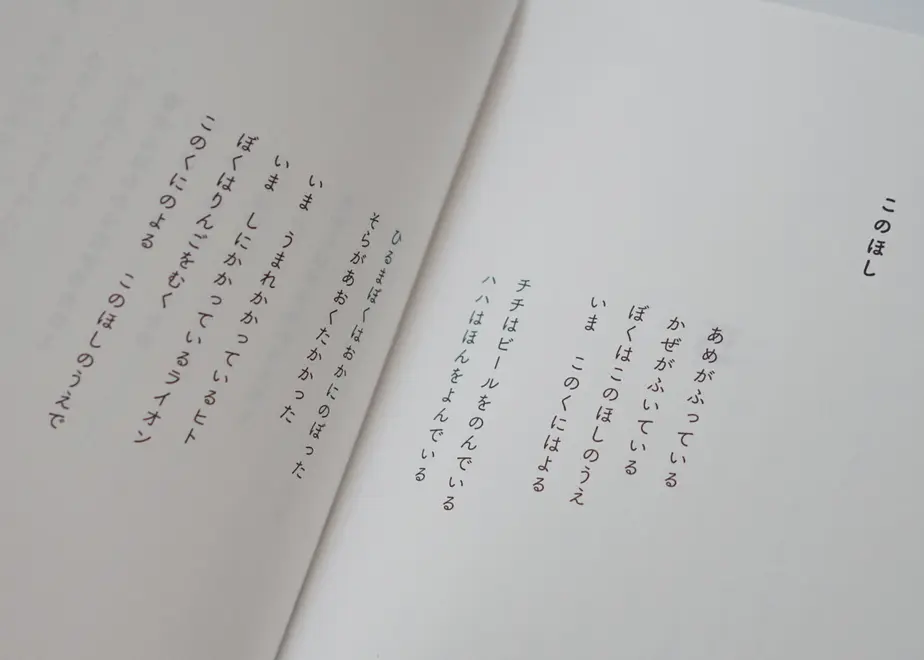 このほし
あめがふっている
かぜがふいている
ぼくはこのほしのうえ
いま　このくにはよる
チチはビールをのんでいる
ハハはほんをよんでいる
ひるまぼくはおかにのぼった
そらがあおくたかかった
いま　うまれかかっているヒト
いま　しにかかっているライオン
ぼくはりんごをむく
このくにのよる　このほしのうえで